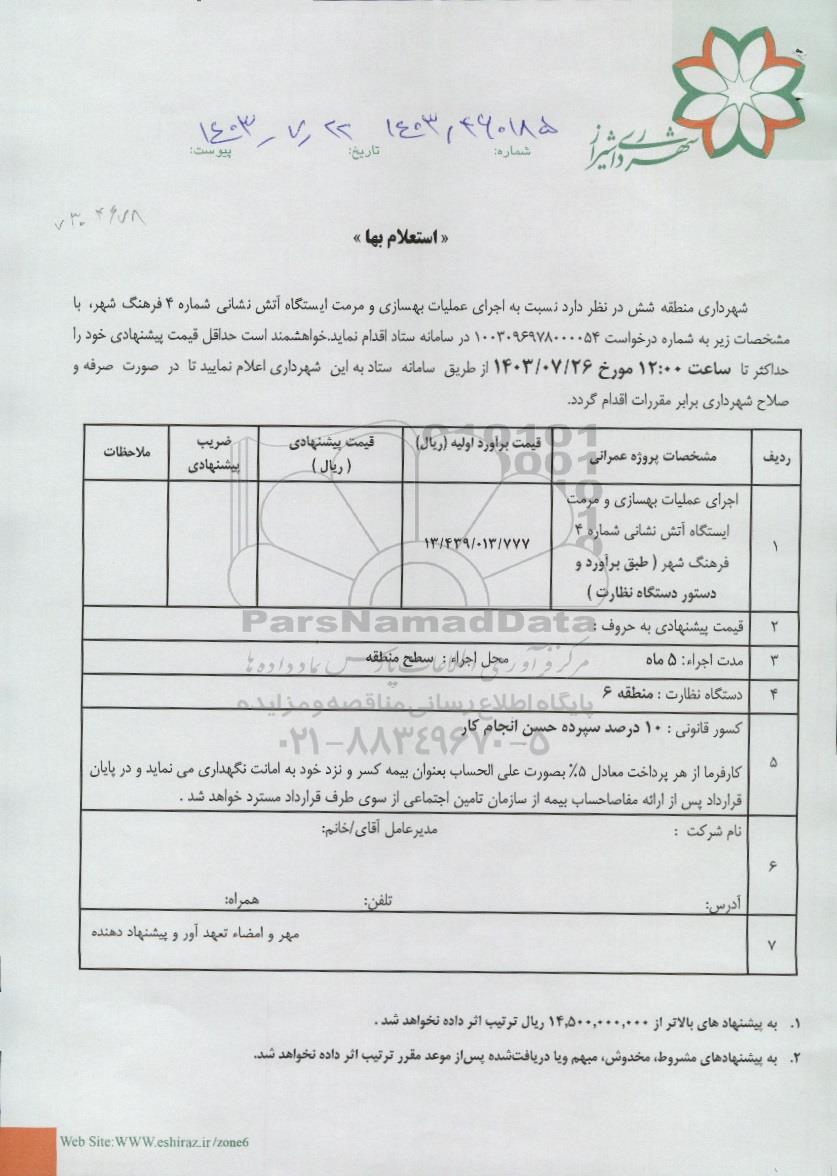 شهرداری شیراز
۱۴۰۳٫۴۶۰۱۸۵ ۱۴۰۳٫۷٫۲۲
شماره: تاریخ: پیوست:
« استعلام بها »
شهرداری منطقه شش در نظر دارد نسبت به اجرای عملیات بهسازی و مرمت ایستگاه آتش نشانی شماره ۴ فرهنگ شهر، با
مشخصات زیر به شماره درخواست ۱۰۰۳۰۹۶۹۷۸۰۰۰۰۵۴ در سامانه ستاد اقدام نماید.خواهشمند است حداقل قیمت پیشنهادی خود را
حداکثر تا ساعت ۱۲:۰۰ مورخ ۱۴۰۳/۰۷/۲۶ از طریق سامانه ستاد به این شهرداری اعلام نمایید تا در صورت صرفه و
صلاح شهرداری برابر مقررات اقدام گردد.
ردیف مشخصات پروژه عمرانی قیمت براورد اولیه (ریال) قیمت پیشنهادی ( ریال ) ضریب پیشنهادی ملاحظات
۱ اجرای عملیات بهسازی و مرمت
ایستگاه آتش نشانی شماره ۴
فرهنگ شهر ( طبق برآورد و
دستور دستگاه نظارت )
۱۳/۴۳۹/۰۱۳/۷۷۷
۲ قیمت پیشنهادی به حروف :
۳ مدت اجراء: ۵ ماه محل اجراء : سطح منطقه
۴ دستگاه نظارت : منطقه ۶
۵ کسور قانونی : ۱۰ درصد سپرده حسن انجام کار
کارفرما از هر پرداخت معادل ۵٪ بصورت علی الحساب بعنوان بیمه کسر و نزد خود به امانت نگهداری می نماید و در پایان
قرارداد پس از ارائه مفاصاحساب بیمه از سازمان تامین اجتماعی از سوی طرف قرارداد مسترد خواهد شد .
۶ نام شرکت : مدیرعامل آقای/خانم:
آدرس: تلفن: همراه:
۷ مهر و امضاء تعهد آور و پیشنهاد دهنده
ParsNamadData
مرکز فرآوری اطلاعات پارس نماد داده ها
پایگاه اطلاع رسانی مناقصه و مزایده
۰۲۱-۸۸۳۴۹۶۷۰-۵
۱. به پیشنهاد های بالاتر از ۱۴,۵۰۰,۰۰۰,۰۰۰ ریال ترتیب اثر داده نخواهد شد .
۲. به پیشنهادهای مشروط، مخدوش، مبهم ویا دریافت‌شده پس‌از موعد مقرر ترتیب اثر داده نخواهد شد.
Web Site:WWW.eshiraz.ir/zone6